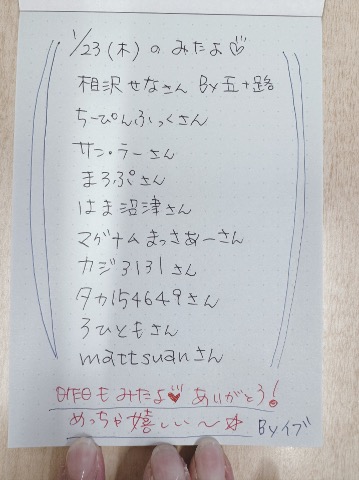 1/23(木)のみたよ♡
相沢せなさん By五十路
ちーぴんふっくさん
サン・ラーさん
まろぷさん
はま沼津さん
マグナムまっさあーさん
カジ3131さん
タカ154649さん
ろひともさん
mattsuanさん
昨日もみたよ♥ ありがとう!
めっちゃ嬉しい〜☆ Byイブ